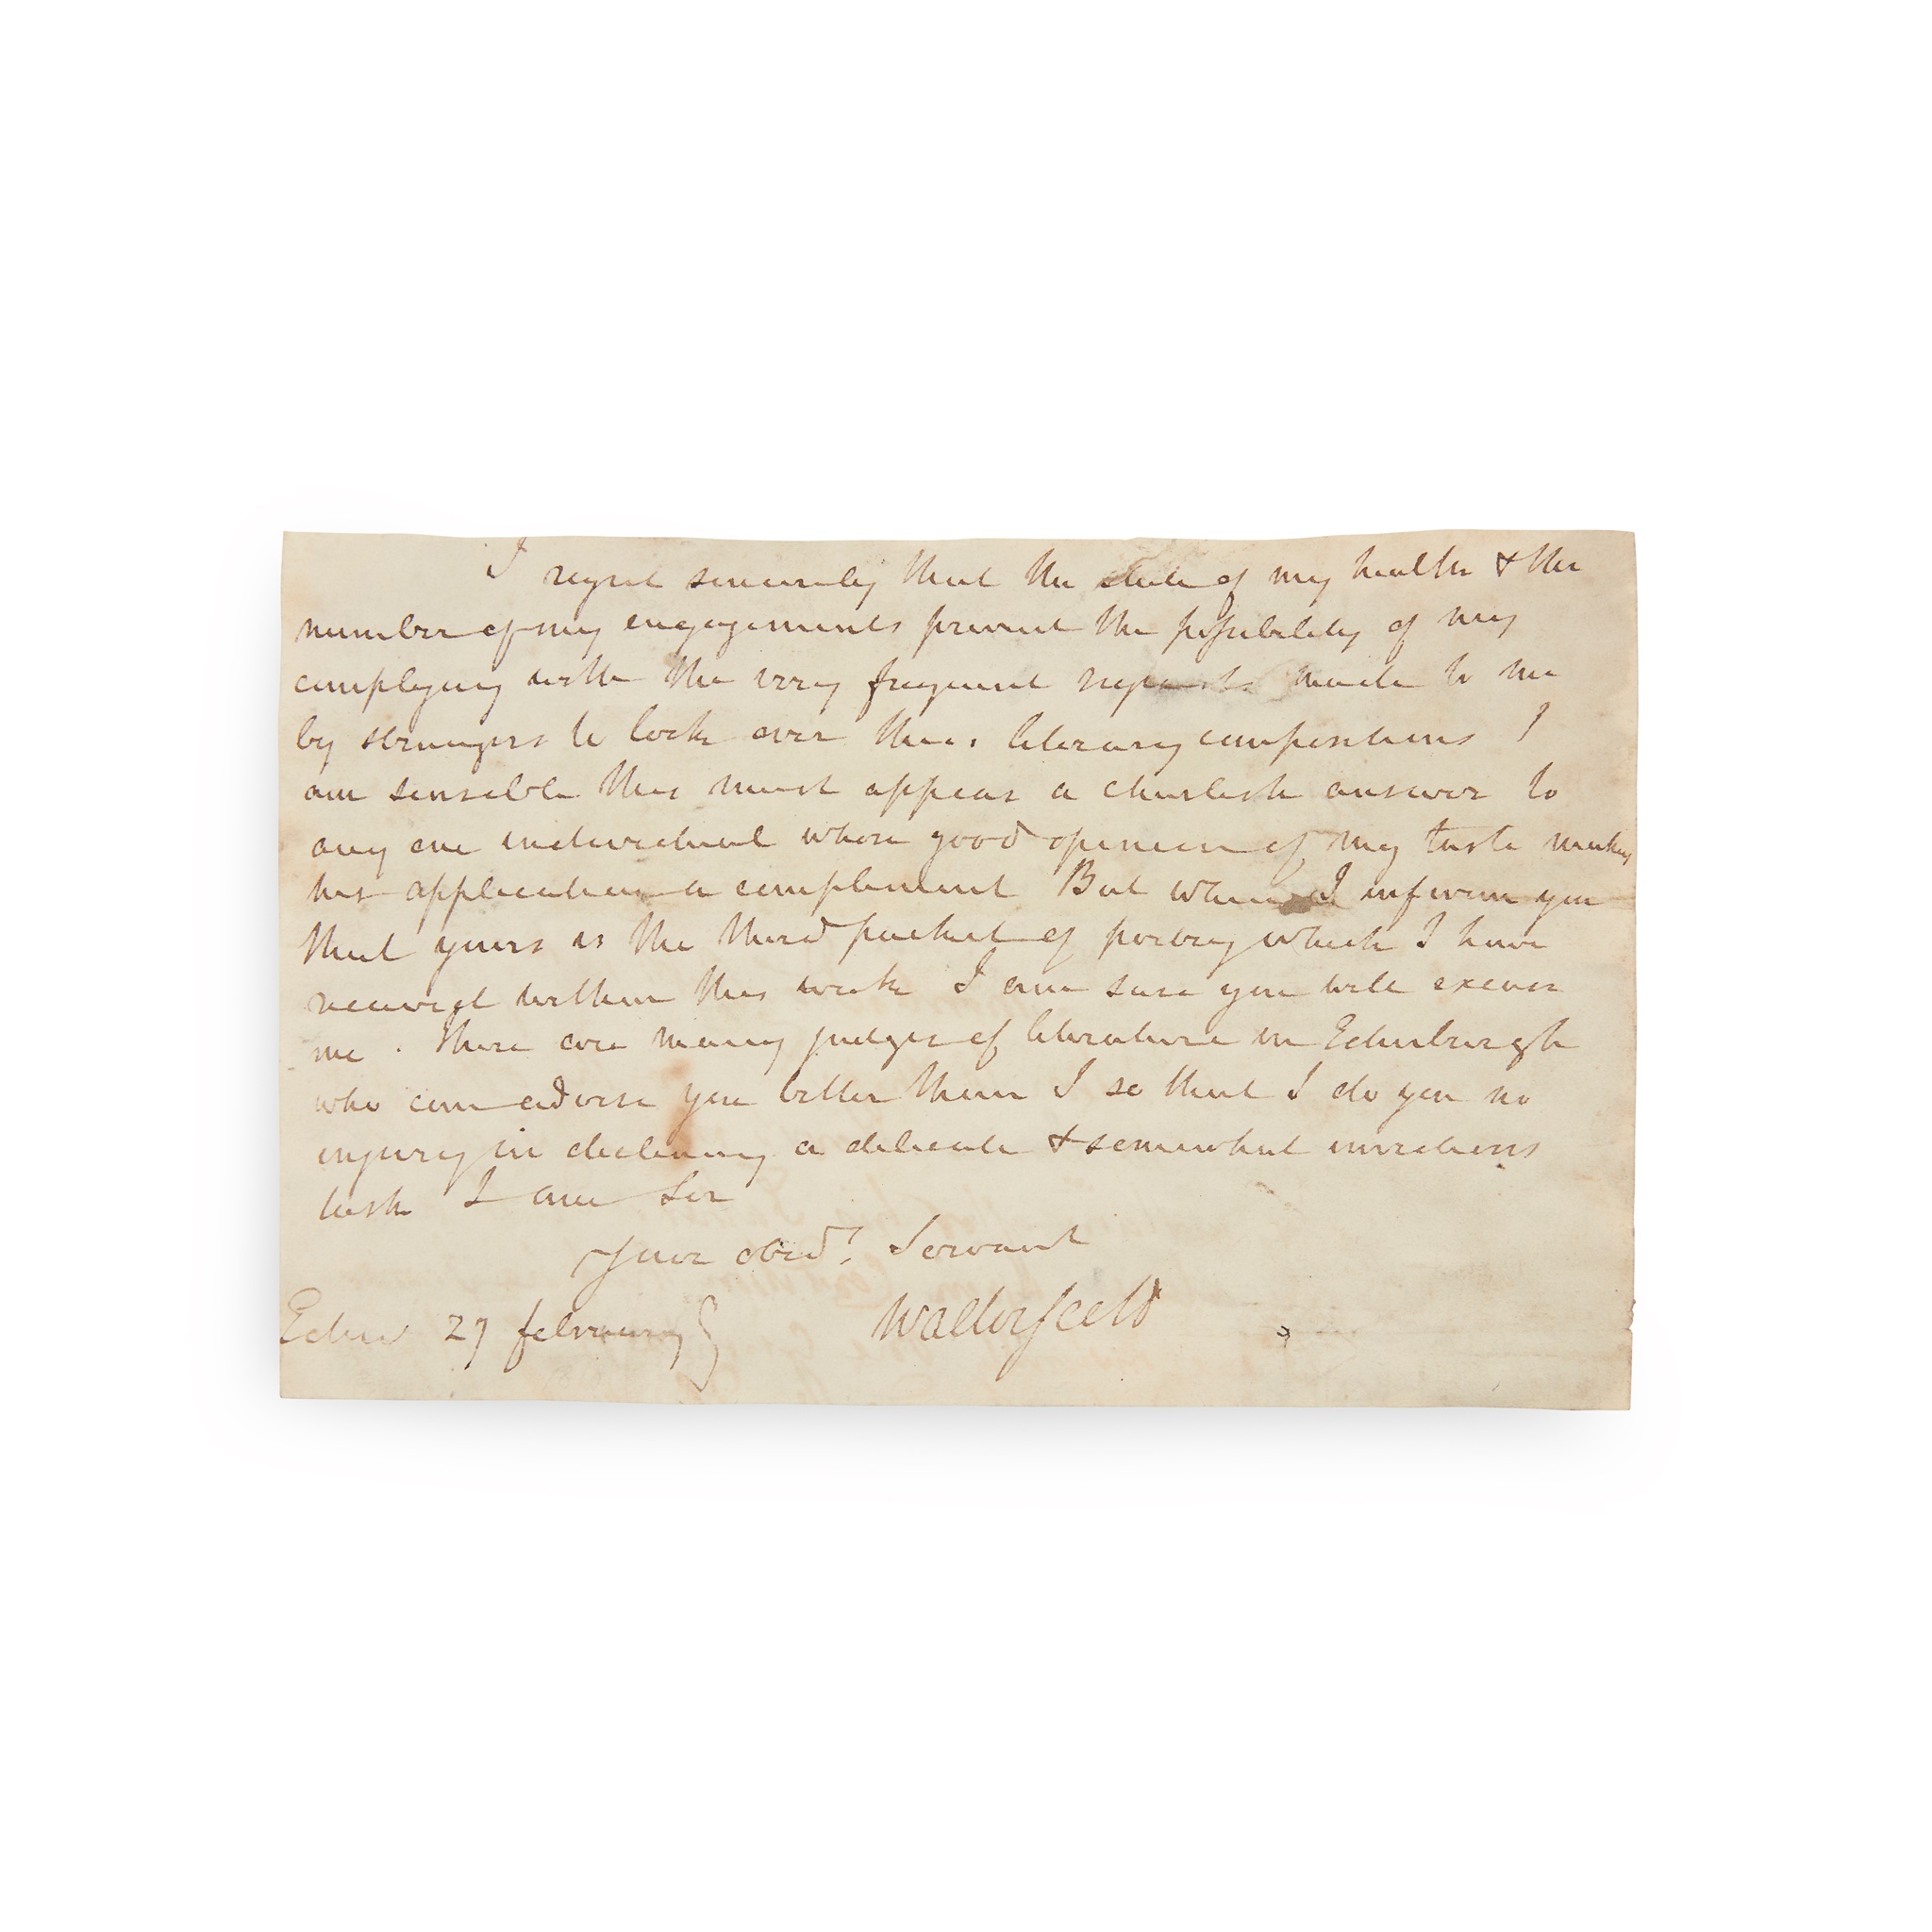 I regret sincerely that the state of my health & the
number of my engagements prevent the possibility of my
complying with the very frequent requests made to me
by strangers to look over their literary compositions I
am sensible this must appear a churlish answer to
any one individual whose good opinion of my taste makes
his application a compliment But when I inform you
that yours is the third packet of poetry which I have
received within this week I am sure you will excuse
me . There are many judges of literature in Edinburgh
who can advise you better than I so that I do you no
injury in declining a delicate & somewhat invidious
task I am Sir
Your obedt. Servant
Edinr 27 february Walter Scott